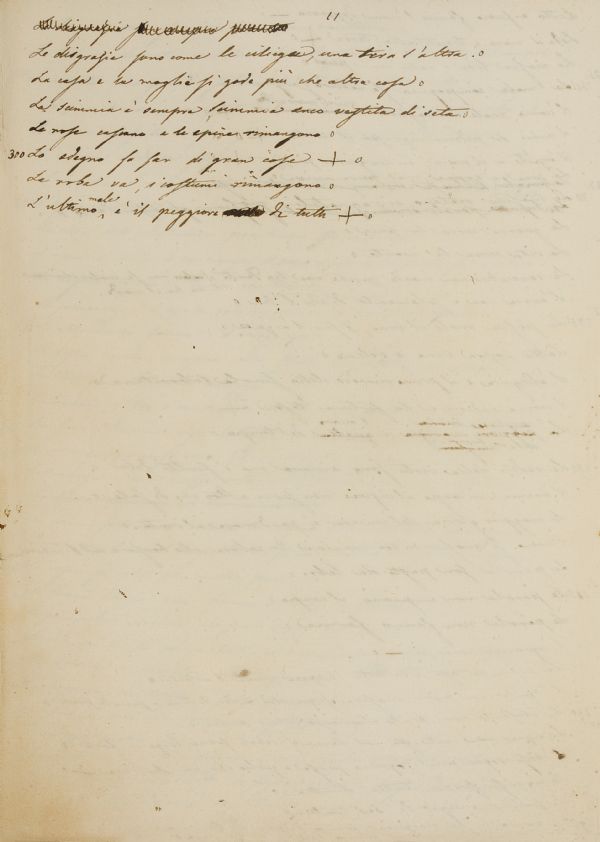 11
Le disgrazie sono come le ciliegie, una tira l'altra. o
La casa e la moglie si gode più che altra cosa o
La scimmia è sempre scimmia anco vestita di seta. o
Le rose cascano e le spine rimangono o
300 Lo sdegno fa far di gran cose + o
La roba va, i costumi rimangono. o
L'ultimo male, è il peggiore di tutti + o